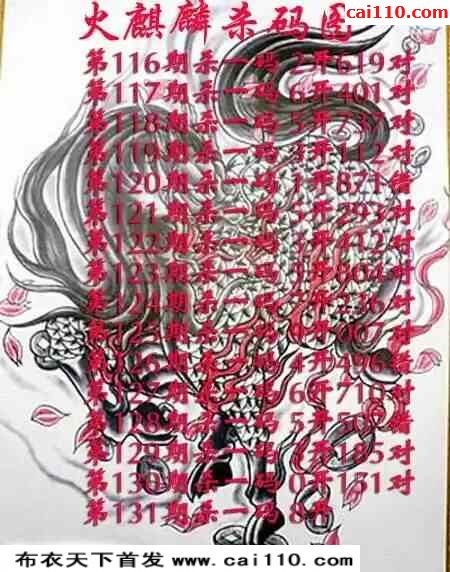 cai110.com
火麒麟杀码图
第116期杀一码 2开619对
第117期杀一码 6开401对
第118期杀一码 5开737对
第119期杀一码 3开112对
第120期杀一码 1开871错
第121期杀一码 5开293对
第122期杀一码 3开412对
第123期杀一码 开804对
第124期杀一码 开236对
第125期杀一码 开007对
第126期杀一码 4开496错
第127期杀一码 6开710对
第128期杀一码 5开50错
第129期杀一码 开185对
第130期杀一码 0开171对
第131期杀一码 8开
布衣天下首发 www.cai110.com